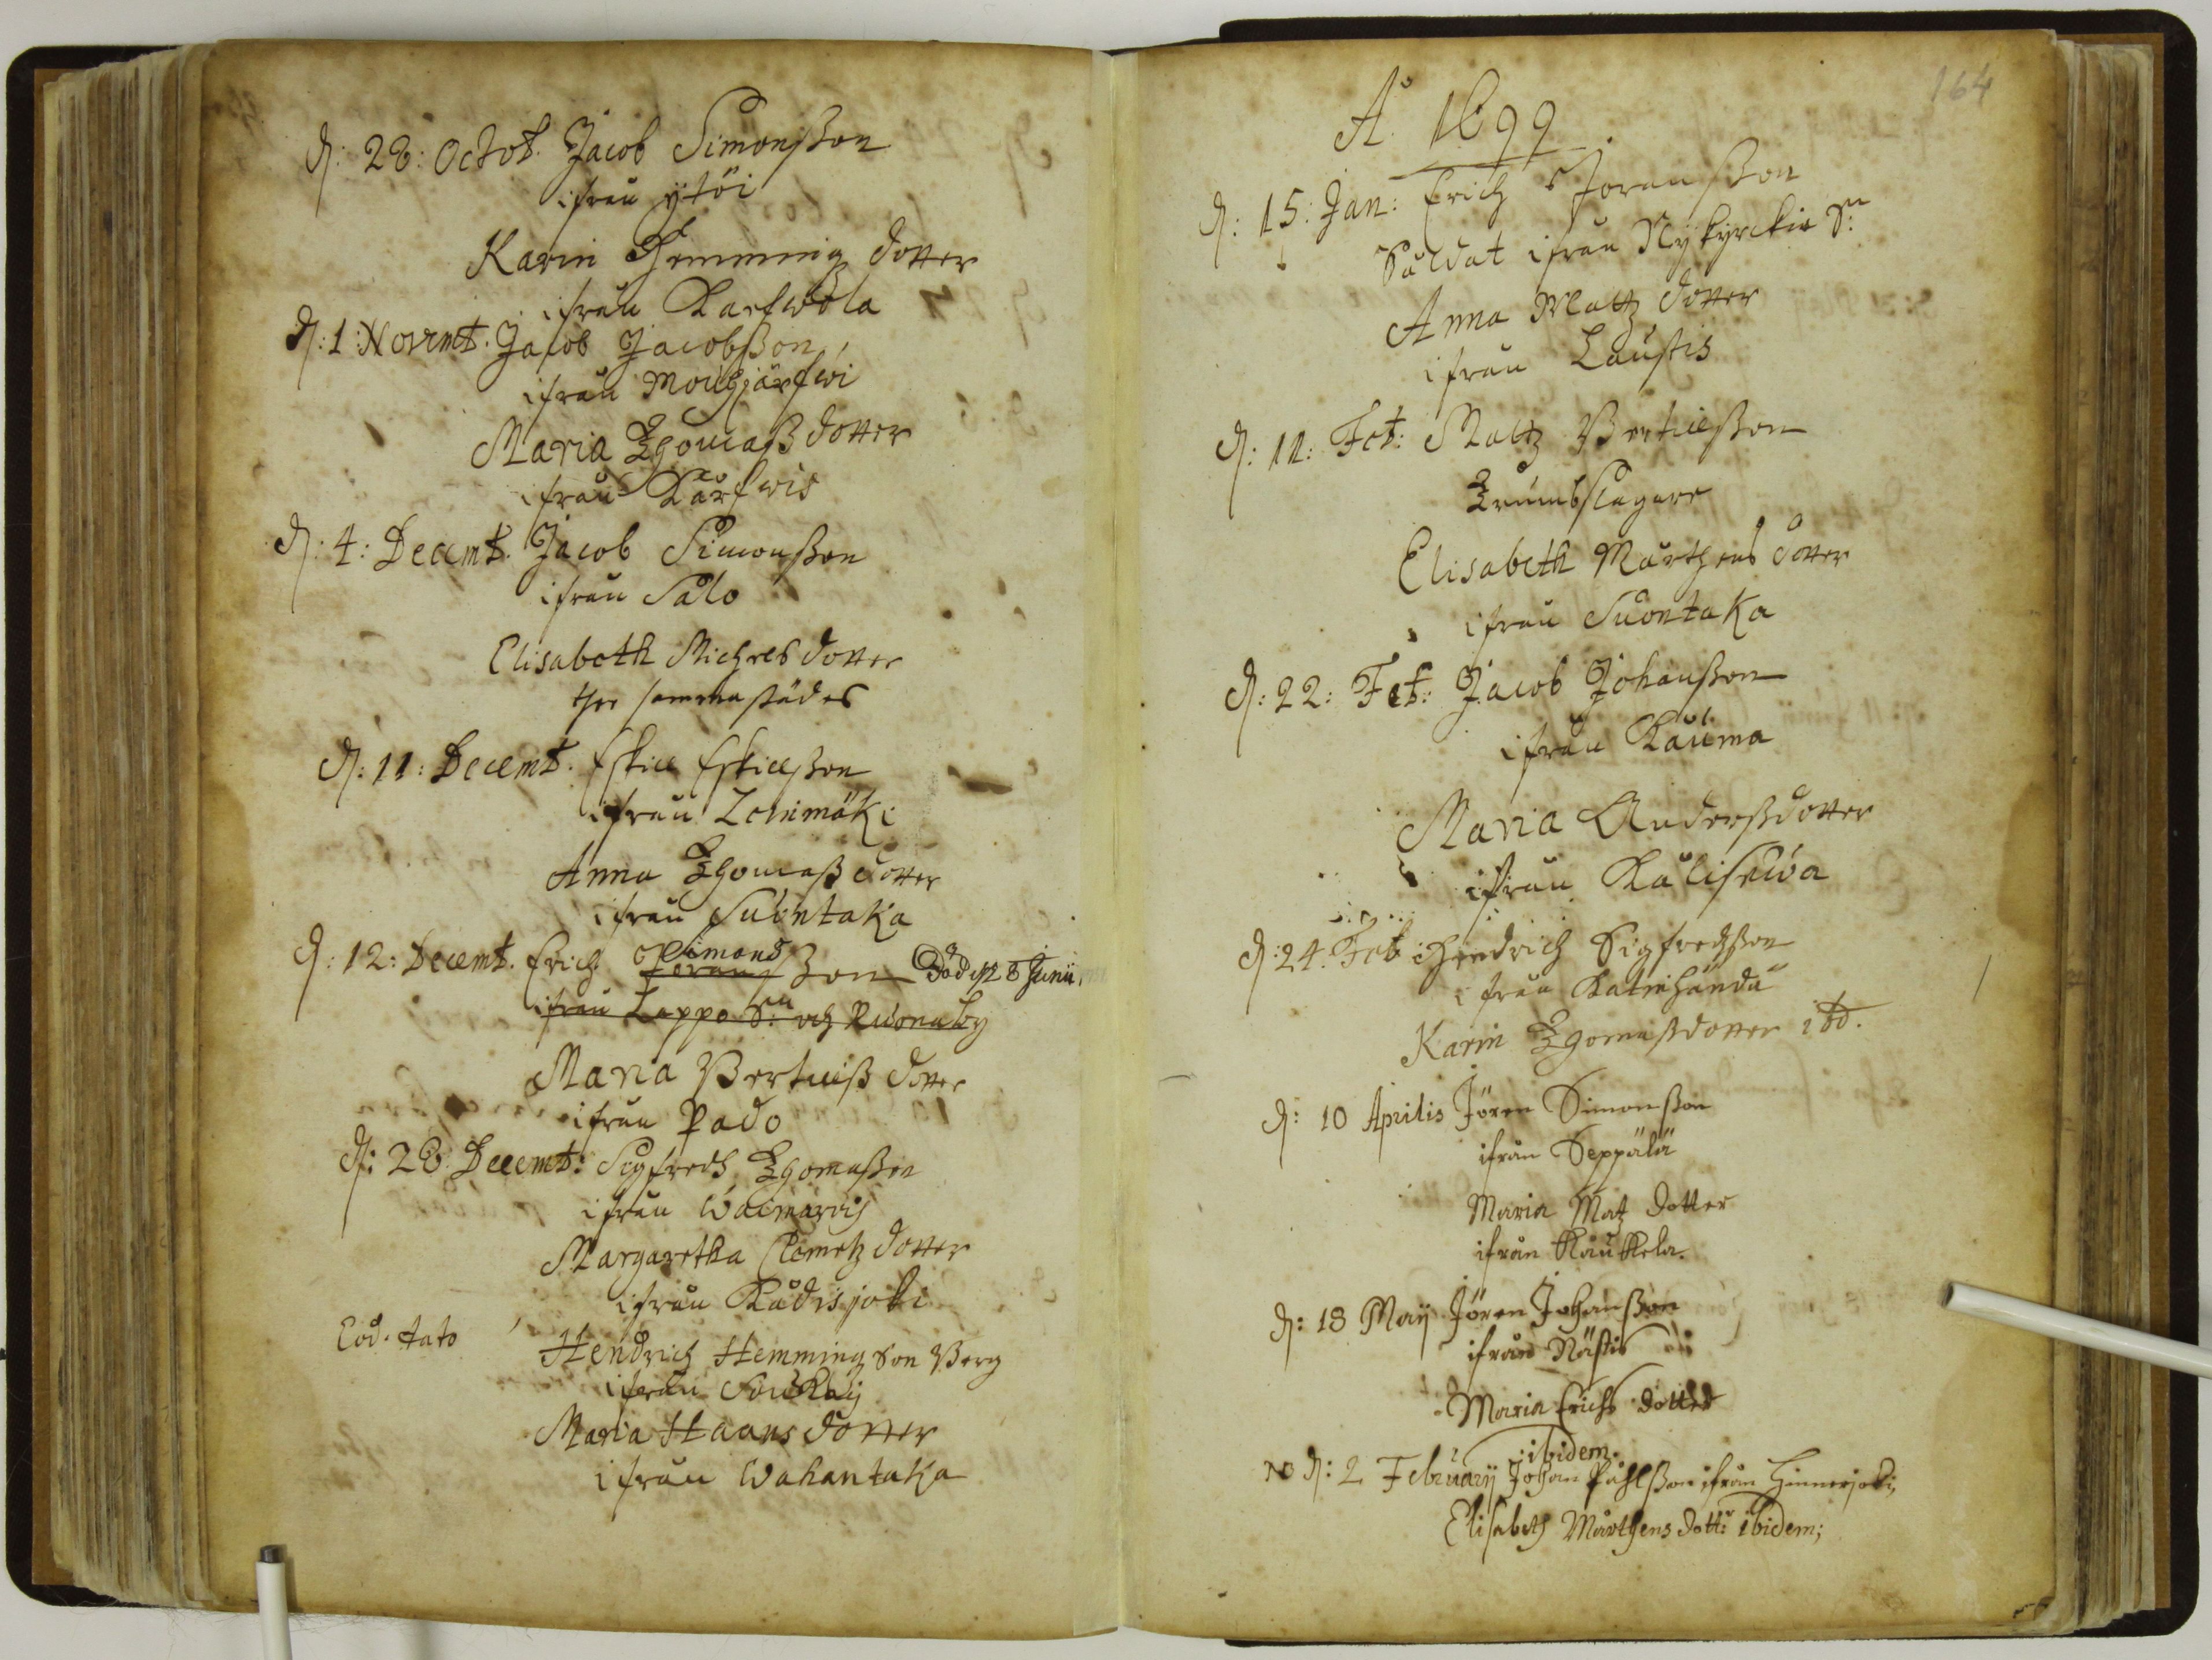 d: 28: Octob. Jacob Simonßon
ifrån ytöi
Karin Hemmingz dotter
ifrån Karfwola
d: 1: Novemb. Jacob Jacobßon
ifrån Mougjärfwi
Maria Thomaß dotter
ifrån
d: 4: Decemb. Jacob Simonßon
ifrån Salo
Elisabeth Michels dotter
ther sammastädes
d: 11: Decemb. Eskill Eskillßon
ifrån
Anna Thomaß dotter
ifrån Suontaka
d: 12: Decemb. Erich Simonds Zon Död d 28 Junii
ifrån Lappo Sn
Maria Bertillß dotter
ifrån Pado
d: 28 Decemb: Sigfredh Thomaßon
ifrån
Margaretha Clemetz dotter
ifrån Kådisjoki
Eod. dato Hendrich Hemmingz Son Berg
ifrån
Maria Haans dotter
ifrån Wahantaka
164
A͏̊ 1699
d: 15: Jan: Erich Joranßon
Såldat ifrån Nykyrkio Sn
Anna Mattz dotter
ifrån Laustis
d: 11: Feb: Mattz Bertillßon
Trumbslagare
Elisabeth Mårthens dotter
ifrån Suontaka
d: 22: Feb: Jacob Johanßon
ifrån Rauma
Maria Anderßdotter
ifrån Kalisewa
d: 24. Feb Hendrich Sigfredßon
ifrån Katinhända
Karin Thomaßdotter ibd.
d: 10 Aprilis Jören Simonßon
ifrån Seppälä
Maria Matz dotter
ifrån Kaukkela.
d: 18 Maij Jören Johanßon
ifrån Nästis
Maria Erichs dotter
ibidem.
NB d: 2 Februarij Johan Påhlßon ifrån Hinnerjoki,
Elisabeth Mårthens dott: ibidem;